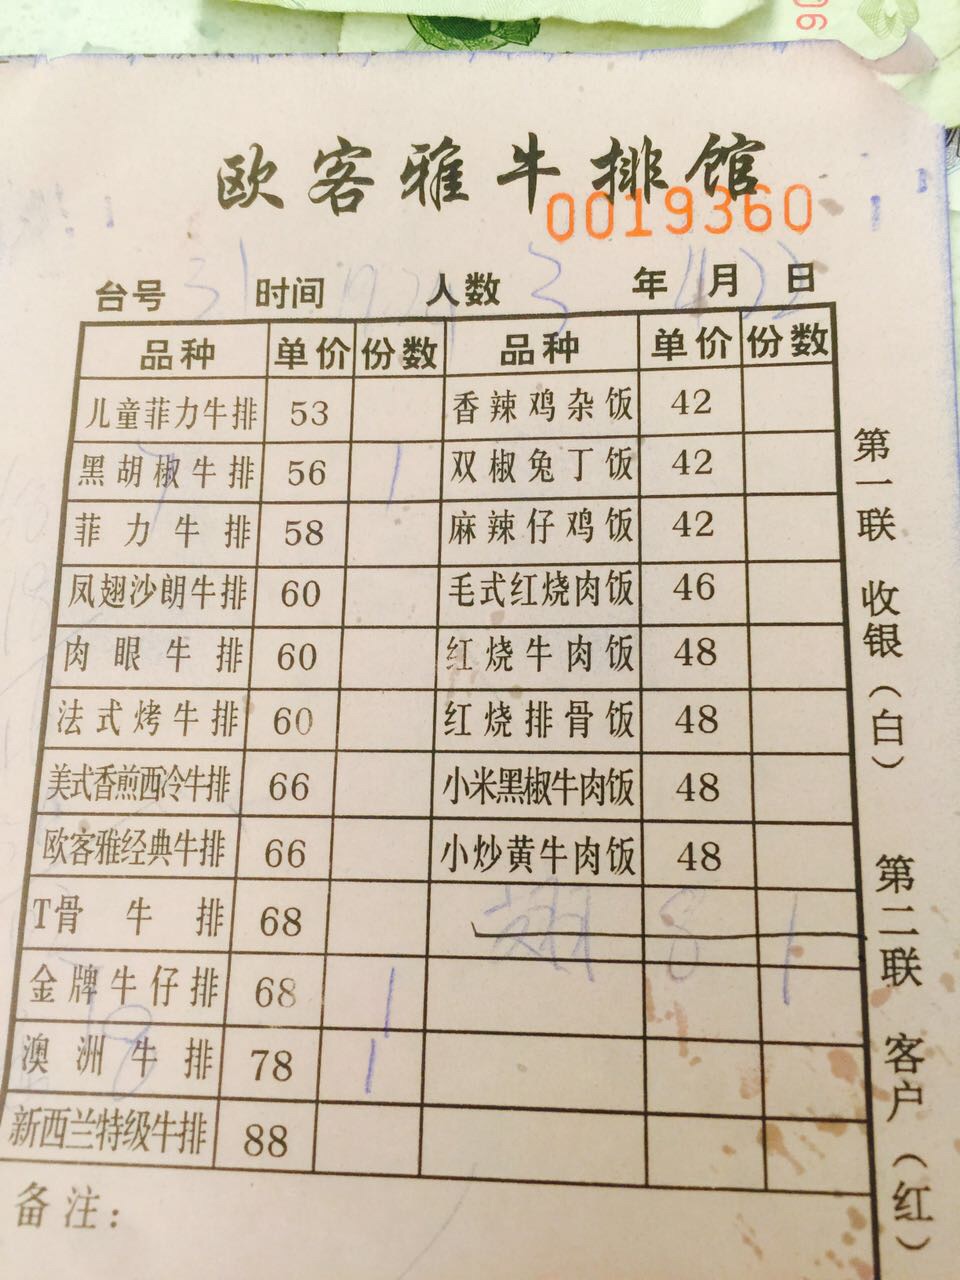 欧客雅牛排馆
0019360
台号 31 时间 人数 3 年 4 月 22 日
品种 单价 份数 品种 单价 份数
儿童菲力牛排 53 香辣鸡杂饭 42
黑胡椒牛排 7 56 1 双椒兔丁饭 42
菲力牛排 58 麻辣仔鸡饭 42
凤翅沙朗牛排 60 毛式红烧肉饭 46
肉眼牛排 60 红烧牛肉饭 48
法式烤牛排 60 红烧排骨饭 48
美式香煎西冷牛排 66 小米黑椒牛肉饭 48
欧客雅经典牛排 66 小炒黄牛肉饭 48
T骨牛排 68 8 1
金牌牛仔排 68 1
澳洲牛排 8 78 1
新西兰特级牛排 88
备注：
第一联 收银（白） 第二联 客户（红）
06